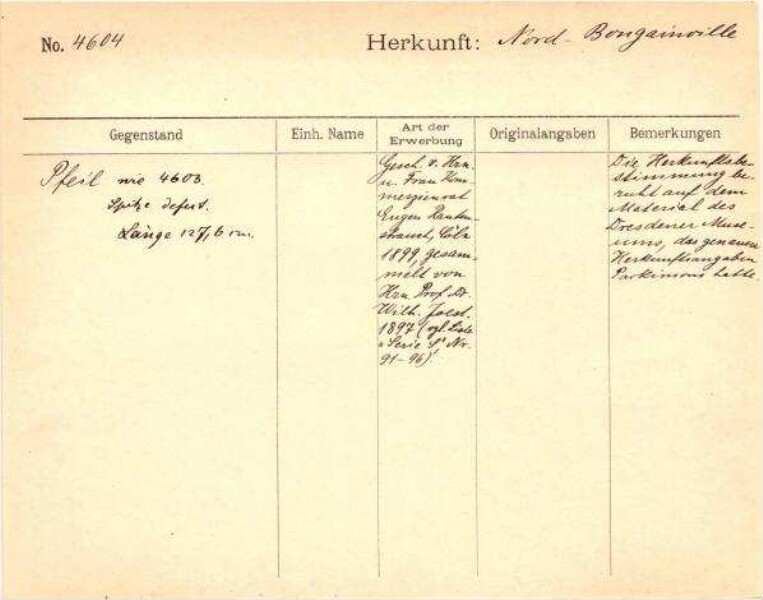 No. 4604
Herkunft: Nord-Bougainville
Gegenstand
Einh. Name
Art der Erwerbung
Originalangaben
Bemerkungen
Pfeil wie 4603.
Spitze defect.
Länge 127,6 cm.
Gesch. v. Hrn.
u. Frau Kom-
merzienrat
Eugen Rauten-
strauch, Cöln
1899, gesam-
melt von
Hrn. Prof. Dr.
Wilh. Joest.
1897 (vgl. Liste
"Serie S" Nr.
91-96)!
Die Herkunftsbe-
stimmung be-
ruht auf dem
Material des
Dresdener Muse-
ums, das genauen
Herkunftsangaben
Parkinsons hatte.